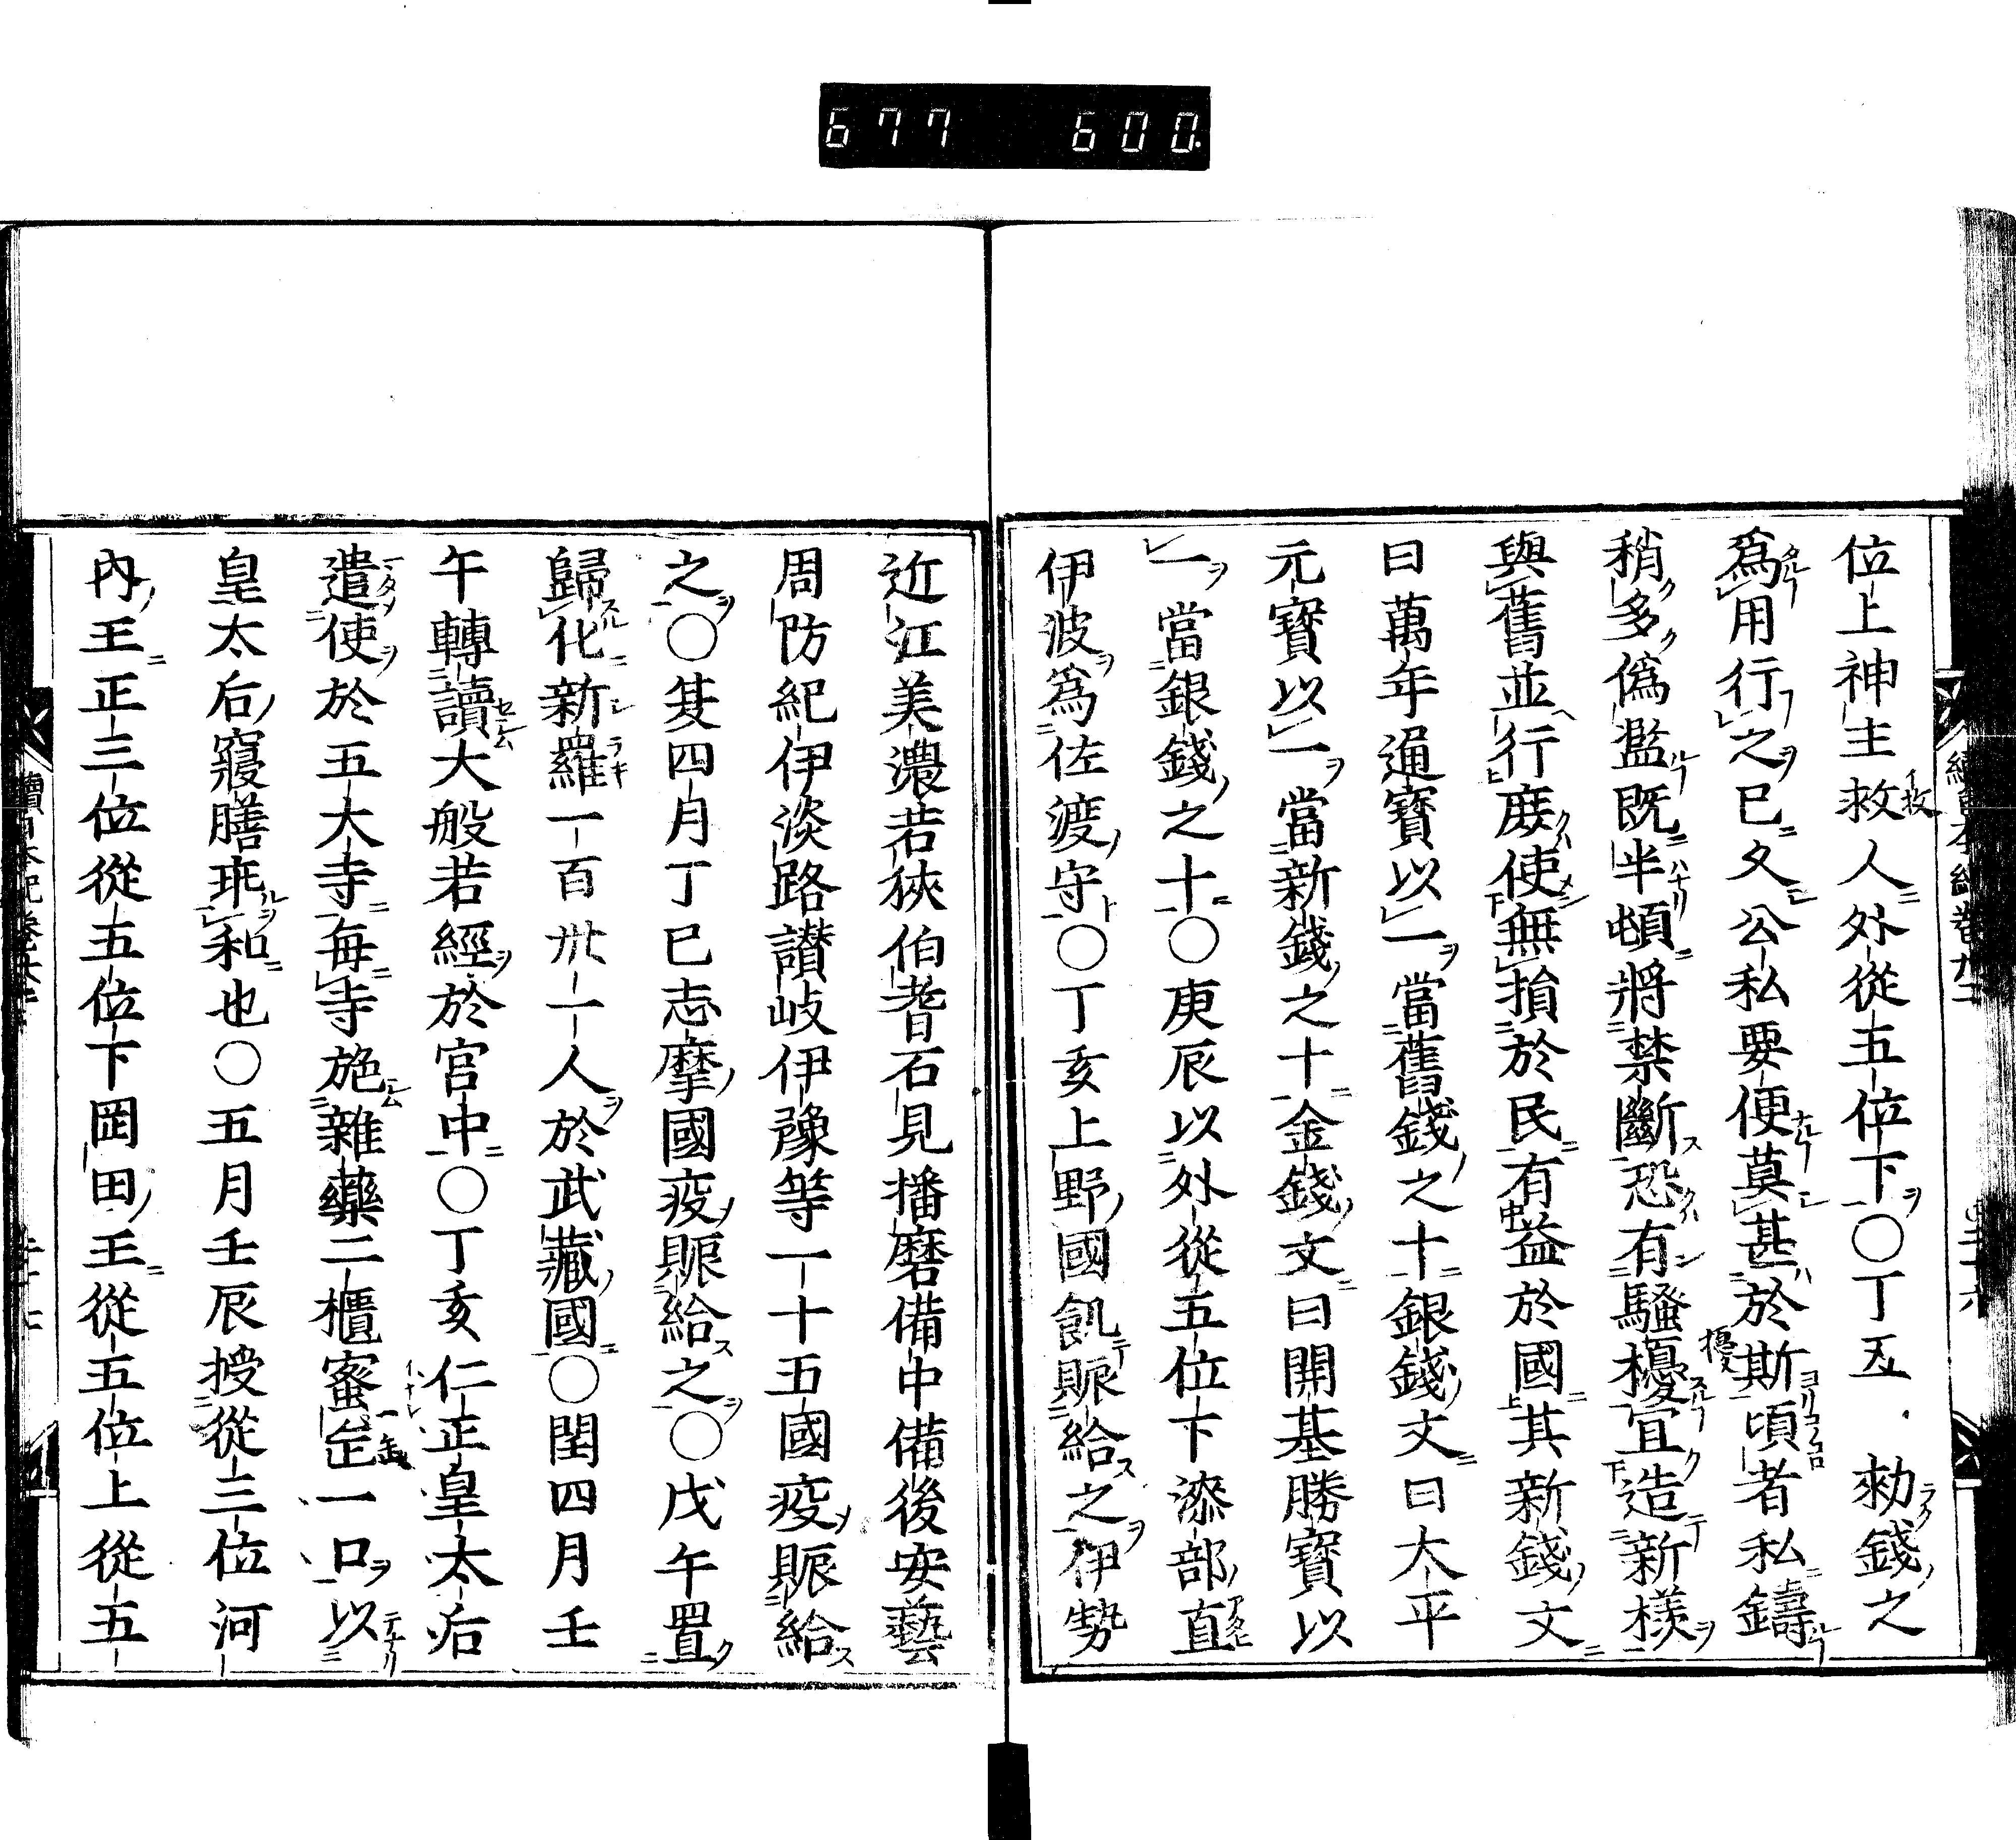 677 600.
位上神主救人外從五位下〇丁丑勑錢之
爲用行之已久公私要便莫甚於斯頃者私鑄
稍多僞濫既半頓將禁斷恐有騷擾宜造新樣
與舊並行庶使無損於民有益於國其新錢文
曰萬年通寳以一當舊錢之十銀錢文曰大平
元寳以一當新錢之十金錢文曰開基勝寳以
一當銀錢之十〇庚辰以外從五位下漆部直
伊波爲佐渡守〇丁亥上野國飢賑給之伊勢
近江美濃若狹伯耆石見播磨備中備後安藝
周防紀伊淡路讃岐伊豫等一十五國疫賑給
之〇夏四月丁巳志摩國疫賑給之〇戊午置
歸化新羅一百卅一人於武藏國〇閏四月壬
午轉讀大般若經於宮中〇丁亥仁正皇太后
遣使於五大寺每寺施雜藥二櫃蜜缶一口以
皇太后寢膳乖和也〇五月壬辰授從三位河
內王正三位從五位下岡田王從五位上從五